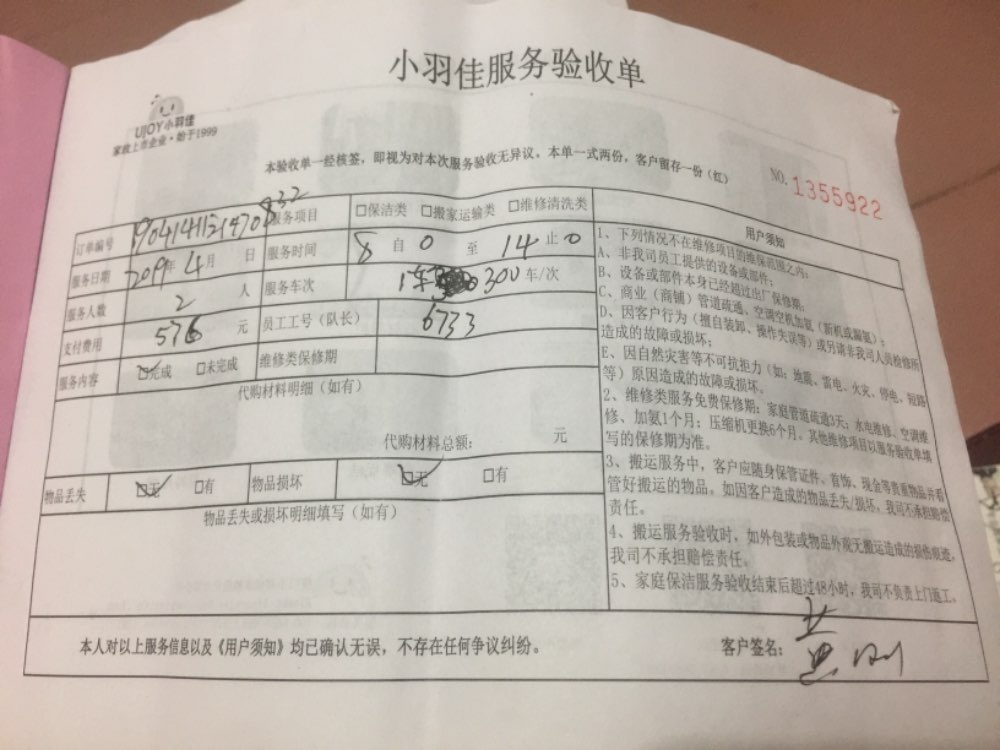 小羽佳服务验收单
UJOY小羽佳
家政上市企业·始于1999
本验收单一经核签，即视为对本次服务验收无异议。本单一式两份，客户留存一份（红）
NO. 1355922
订单编号 服务项目 □保洁类 □搬家运输类 □维修清洗类
服务日期 2019年4月 日 服务时间 8 自 0 至 14 止 0
服务人数 2 人 服务车次 300 车/次
支付费用 576 元 员工工号（队长） 6733
服务内容 ☑完成 □未完成 维修类保修期
代购材料明细（如有）
代购材料总额： 元
物品丢失 ☑无 □有 物品损坏 ☑无 □有
物品丢失或损坏明细填写（如有）
用户须知
1、下列情况不在维修项目的维保范围之内：
A、非我司员工提供的设备或部件；
B、设备或部件本身已经超过出厂保修期；
C、商业（商铺）管道疏通、空调空机加氨（新机或漏氨）；
D、因客户行为（擅自装卸、操作失误等）或另请非我司人员检修所
造成的故障或损坏；
E、因自然灾害等不可抗拒力（如：地震、雷电、火灾、停电、短路
等）原因造成的故障或损坏。
2、维修类服务免费保修期：家庭管道疏通3天；水电维修、空调维
修、加氨1个月；压缩机更换6个月。其他维修项目以服务验收单填
写的保修期为准。
3、搬运服务中，客户应随身保管证件、首饰、现金等贵重物品并看
管好搬运的物品。如因客户造成的物品丢失/损坏，我司不承担赔偿
责任。
4、搬运服务验收时，如外包装或物品外观无搬运造成的损伤痕迹，
我司不承担赔偿责任。
5、家庭保洁服务验收结束后超过48小时，我司不负责上门返工。
本人对以上服务信息以及《用户须知》均已确认无误，不存在任何争议纠纷。 客户签名：